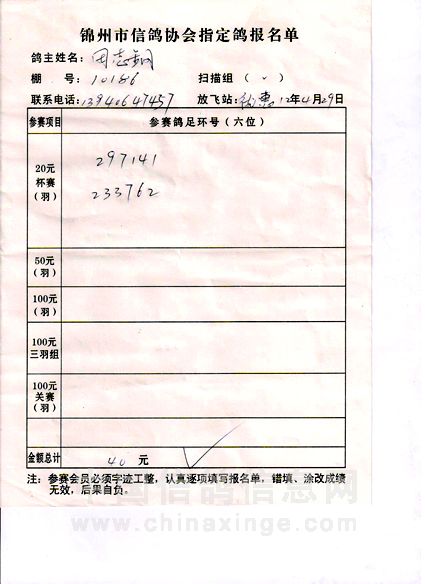 锦州市信鸽协会指定鸽报名单
鸽主姓名: 田志钢
棚 号: 10186 扫描组 ( ✓ )
联系电话: 13940647457 放飞站: 12年4月29日
参赛项目 参赛鸽足环号(六位)
20元
杯赛
(羽)
297141
233762
50元
(羽)
100元
(羽)
100元
三羽组
100元
关赛
(羽)
金额总计 40 元
注: 参赛会员必须字迹工整, 认真逐项填写报名单, 错填、涂改成绩
无效, 后果自负。
中国信鸽信息网
www.chinaxinge.com